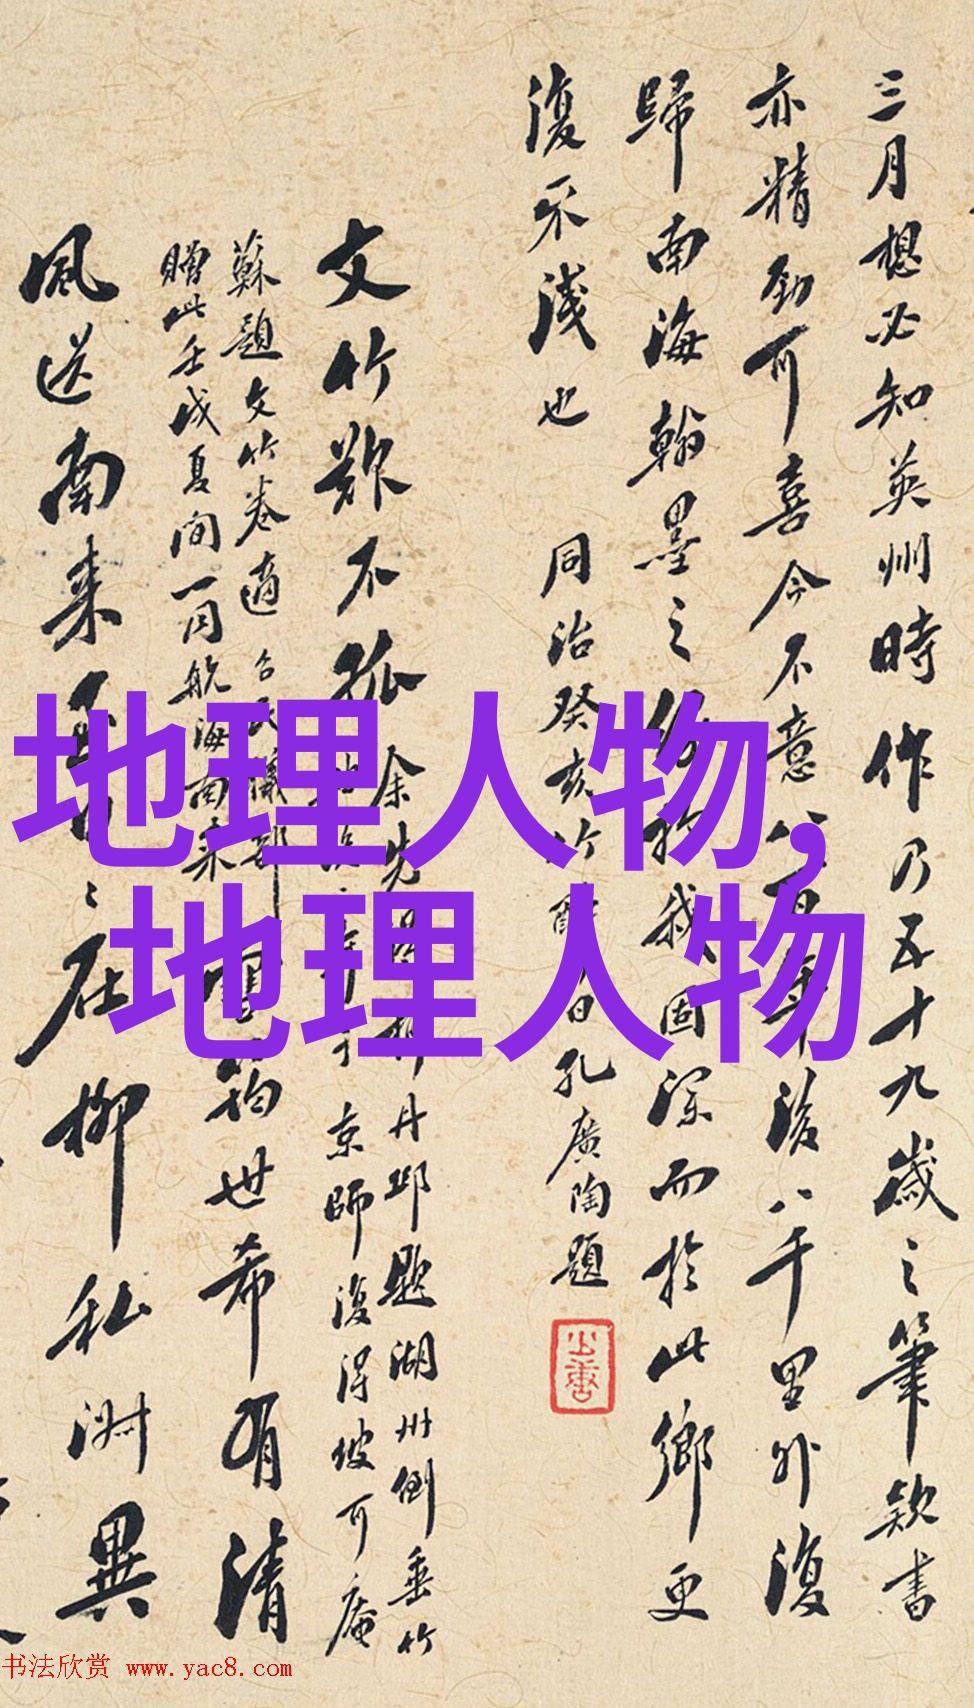 三月想必知英州時作乃五十九歲之筆欵書
亦精勁可喜今不意八百年後八千里外復
歸南海翰墨之於我固深而於此鄉更
復不淺也 同治癸亥竹醉日孔廣陶題
文竹欵不孤 余先
丹邱題湖州倒垂竹
京師復得坡可庵
蘇題文竹卷適
贈此壬戌夏間一同航海南来
筠世希有清
風送南来
在柳私淑異
地理人物,
地理人物
书法欣赏 www.yac8.com